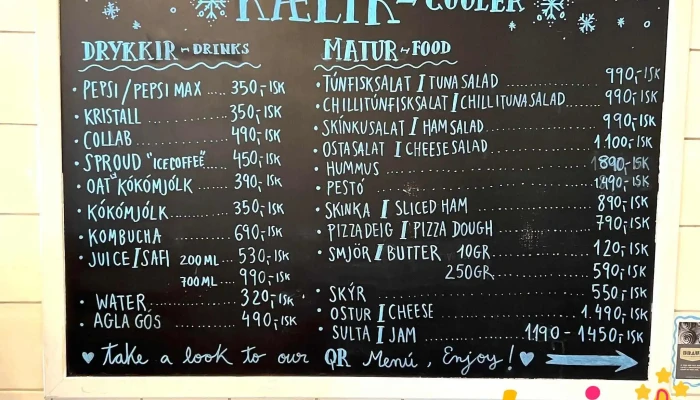 KÆLIR ~ COOLER
DRYKKIR ~ DRINKS
PEPSI / PEPSI MAX .... 350,- ISK
KRISTALL 350,- ISK
COLLAB 490,- ISK
SPROUD "ICECOFFEE" 450,- ISK
OAT "KÓKÓMJÓLK 390,- ISK
KÓKÓMJÓLK 350,- ISK
KOMBUCHA 690,- ISK
JUICE I SAFI 200 ML 530,- ISK
700 ML 990,- ISK
WATER 320,- ISK
AGLA GOS 490,- ISK
MATUR ~ FOOD
TÚNFISKSALAT I TUNA SALAD 990,- ISK
CHILLITÚNFISKSALAT I CHILLI TUNA SALAD 990,- ISK
SKINKUSALAT I HAM SALAD 990,- ISK
OSTASALAT I CHEESE SALAD 1.100,- ISK
HUMMUS 890,- ISK
PESTÓ 1.490,- ISK
SKINKA I SLICED HAM 890,- ISK
PIZZADEIG I PIZZA DOUGH 790,- ISK
SMJÖR I BUTTER 10GR 120,- ISK
250GR 590,- ISK
SKÝR 550,- ISK
OSTUR I CHEESE 1.490,- ISK
SULTA I JAM 1190 - 1450,- ISK
take a look to our QR Menú, Enjoy!